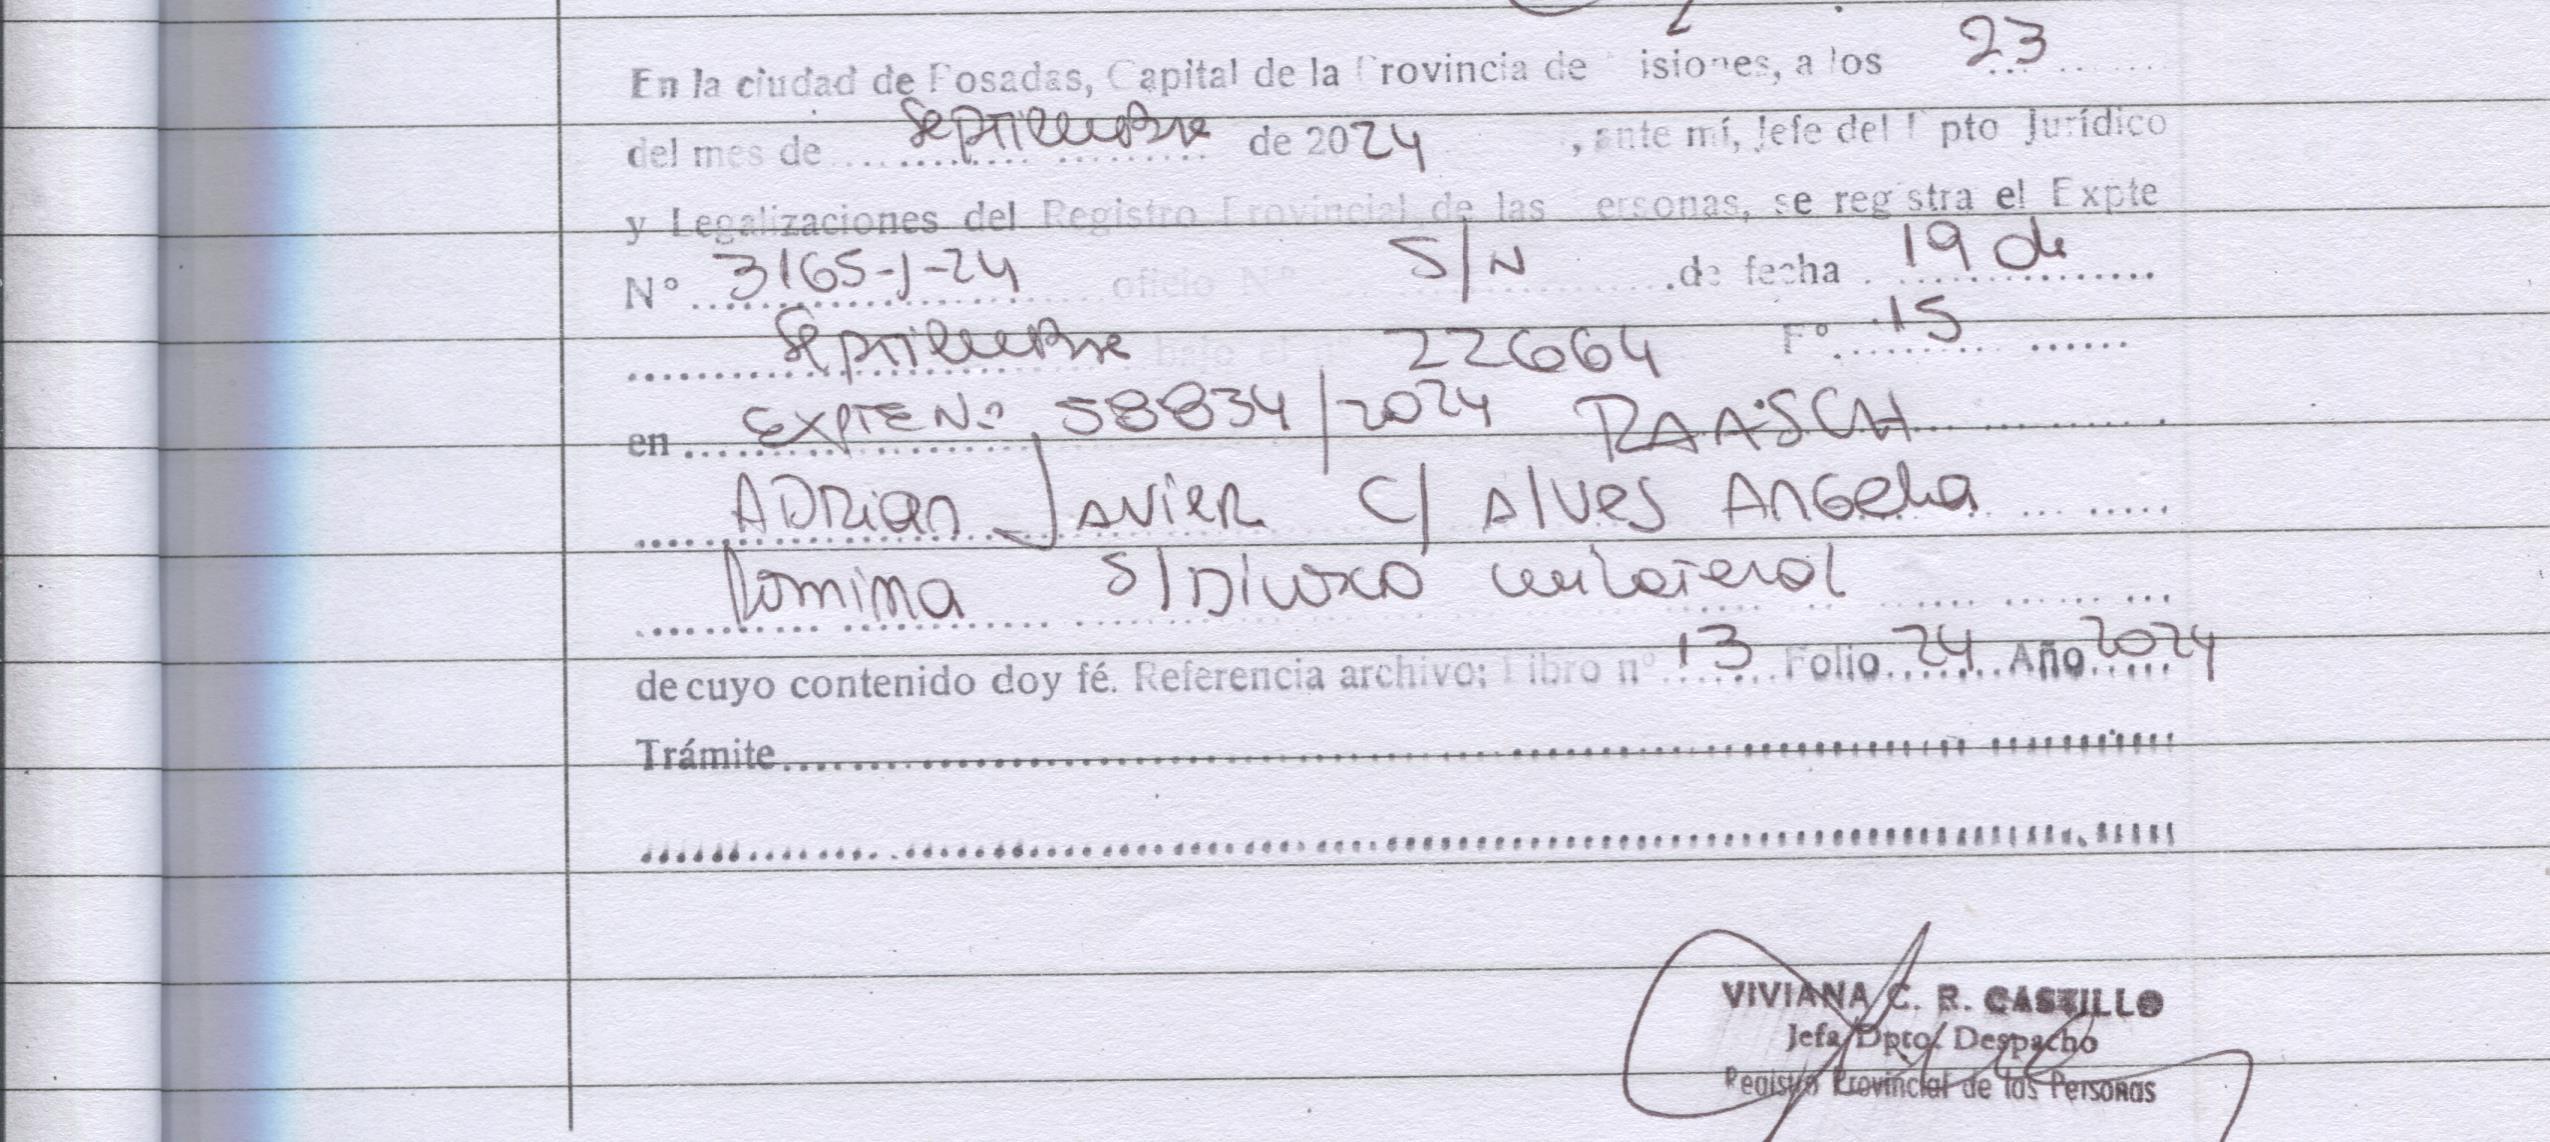 En la ciudad de Posadas, Capital de la Provincia de Misiones, a los 23
del mes de Septiembre de 2024, ante mí, Jefe del Dpto Jurídico
y Legalizaciones del Registro Provincial de las Personas, se registra el Expte
N° 3165-J-24 oficio N° S/N de fecha 19 de
Septiembre bajo el n° 22664 F° 15
en EXPTE N° 58834/2024 RAASCH
ADRian Javier C/ Alves Angelia
Romina S/Divorcio unilateral
de cuyo contenido doy fé. Referencia archivo; Libro n° 13 Folio 24 Año 2024
Trámite
VIVIANA C. R. CASTILLO
Jefa Dpto. Despacho
Registro Provincial de las Personas